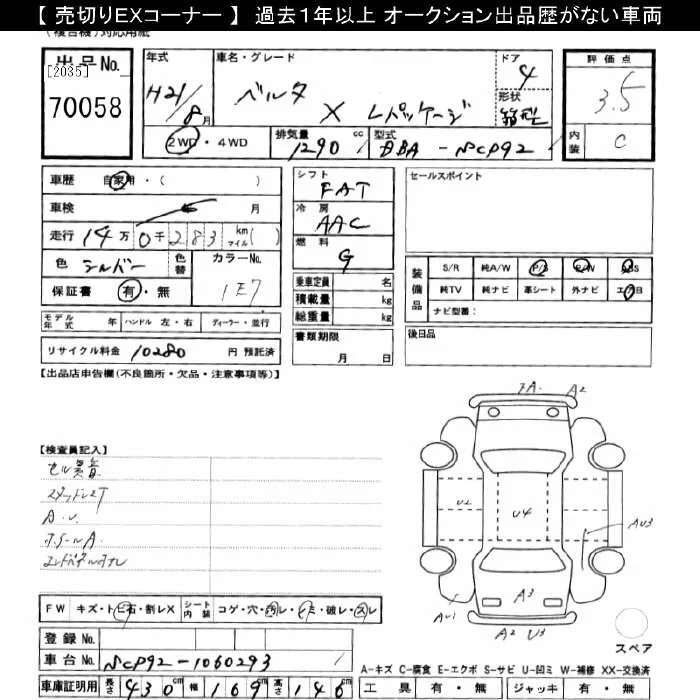 【 売切りEXコーナー 】 過去１年以上 オークション出品歴がない車両
(複合機)対応用紙
出品No. [2035]
70058
年式 H21/8月
車名・グレード ベルタ X Lパッケージ
ドア 4
形状 箱型
評価点 3.5
内装 C
2WD・4WD
排気量 1290 cc
型式 DBA-SCP92
車歴 自家用・( )
車検 月
走行 14万0千283 km マイル( )
色 シルバー 色替 カラーNo. 1E7
保証書 有・無
モデル年式 年 ハンドル 左・右 ディーラー・並行
リサイクル料金 10280 円 預託済
シフト FAT
冷房 AAC
燃料 G
乗車定員 名
積載量 kg
総重量 kg
書類期限 月 日
セールスポイント
装備品 S/R 純A/W P/S P/W ABS
純TV 純ナビ 革シート 外ナビ エアB
ナビ型番:
後日品
【出品店申告欄(不良箇所・欠品・注意事項等)】
【検査員記入】
セル異音
スタッドレスT
A.U.
ホイールA.
FA. A2
U2 U4 AU3
A3
AU1
A2 U3
スペア
FW キズ・トビ石・割レX シート内装 コゲ・穴・汚レ・イタミ・破レ・スレ
登録No.
車台No. SCP92-1060293
車庫証明用 長さ 430cm 幅 169cm 高さ 146cm
A-キズ C-腐食 E-エクボ S-サビ U-凹ミ W-補修 XX-交換済
工具 有・無 ジャッキ 有・無